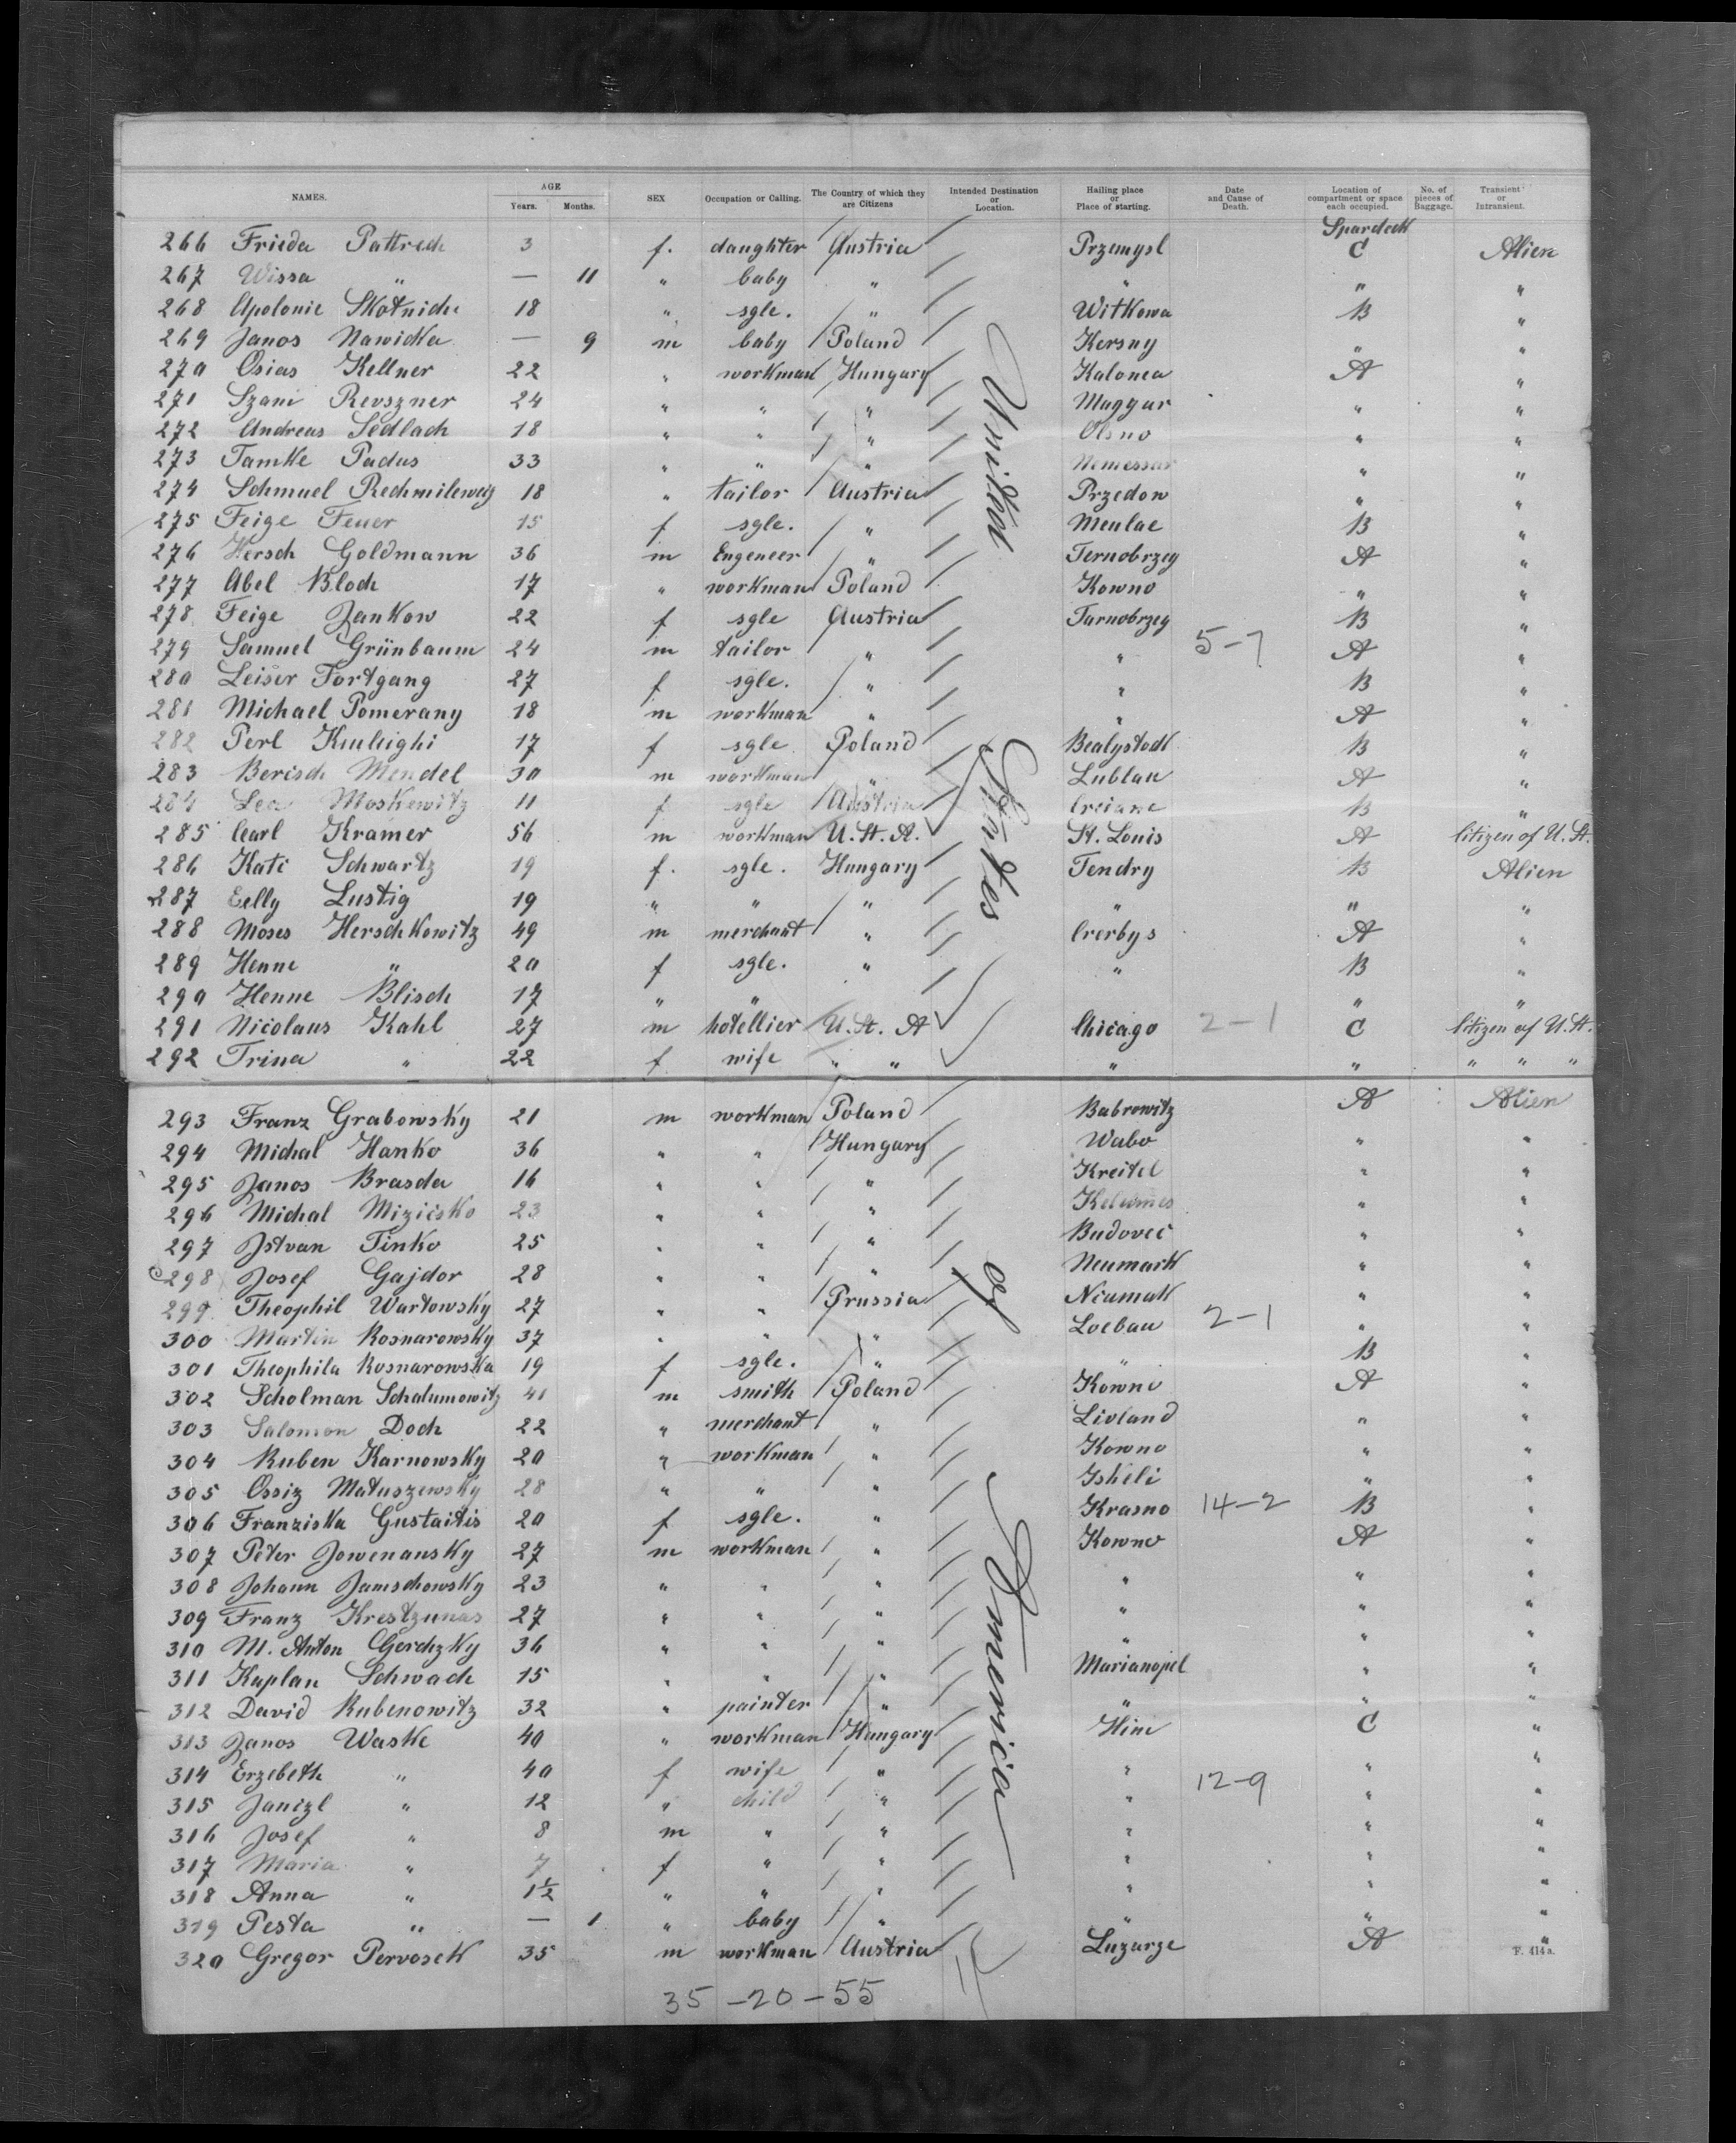 NAMES. AGE Years. Months. SEX Occupation or Calling. The Country of which they are Citizens Intended Destination or Location. Hailing place or Place of starting. Date and Cause of Death. Location of compartment or space each occupied. No. of pieces of Baggage. Transient or Intransient.
Spardeck
266 Frieda Pattrech 3 f. daughter Austria Przemysl C Alien
267 Wissa " — 11 " baby " " " "
268 Apolonie 18 " sgle. " Witkowa B "
269 Janos Nawicka — 9 m baby Poland Kersny " "
270 Osias Kellner 22 " workman Hungary Kalonea A "
271 Szani Revszner 24 " " " Maggar " "
272 Andreas Sedlach 18 " " " Olsno " "
273 Tamke Padus 33 " " " Nemessar " "
274 Schmuel 18 " tailor Austria Przedow " "
275 Feige Feuer 15 f sgle. " Meulae B "
276 Hersch Goldmann 36 m Engeneer " Ternobrzeg A "
277 Abel Bloch 17 " workman Poland Kowno " "
278 Feige Jankow 22 f sgle Austria Tarnobrzeg B "
279 Samuel Grünbaum 24 m tailor " " 5-7 A "
280 Leiser Fortgang 27 f sgle. " " B "
281 Michael Pomerany 18 m workman " " A "
282 Perl 17 f sgle Poland Bealystock B "
283 Berisch Mendel 30 m workman " Lublau A "
284 Lea Moskewitz 11 f sgle Austria B "
285 Carl Kramer 56 m workman U. St. A. St. Louis A Citizen of U. St.
286 Kati Schwartz 19 f. sgle. Hungary Tendry B Alien
287 Lustig 19 " " " " " "
288 Moses Herschkowitz 49 m merchant " Crerbys A "
289 Henne " 20 f sgle. " " B "
290 Henne Blisch 17 " " " " "
291 Nicolaus Kahl 27 m hotellier U. St. A Chicago 2-1 C Citizen of U. St.
292 Trina " 22 f wife " " " " " " "
293 Franz Grabowsky 21 m workman Poland Babrowitz A Alien
294 Michal Hanko 36 " " Hungary Wabo " "
295 Janos Brasda 16 " " " Kreitel " "
296 Michal Mizicsko 23 " " " " "
297 Jstvan Tinko 25 " " " Budovec " "
298 Josef Gajdor 28 " " " Neumark " "
299 Theophil Wartowsky 27 " " Prussia Neumak " "
300 Martin Rosnarowsky 37 " " " Loebau 2-1 " "
301 Theophila Rosnarowska 19 f sgle. " " B "
302 Scholman Schalumowitz 41 m smith Poland Kowno A "
303 Salomon Doch 22 " merchant " Livland " "
304 Ruben Karnowsky 20 " workman " Kowno " "
305 Ossiz Matuszewsky 28 " " " Isheli " "
306 Franziska Gustaitis 20 f sgle. " Krasno 14-2 B "
307 Peter Jowenansky 27 m workman " Kowno A "
308 Johann Jamschowsky 23 " " " " " "
309 Franz Krestzunas 27 " " " " " "
310 M. Anton Gerdzky 36 " " " " " "
311 Kaplan Schwach 15 " " " Marianopel " "
312 David Rubenowitz 32 " painter " " " "
313 Janos Waske 40 " workman Hungary Hine C "
314 Erzebeth " 40 f wife " " 12-9 " "
315 Janizl " 12 " child " " " "
316 Josef " 8 m " " " " "
317 Maria " 7 f " " " " "
318 Anna " 1½ " " " " " "
319 Pesta " — 1 " baby " " " "
320 Gregor Pervosek 35 m workman Austria Luzarze A "
United States of America
F. 414a.
35 - 20 - 55